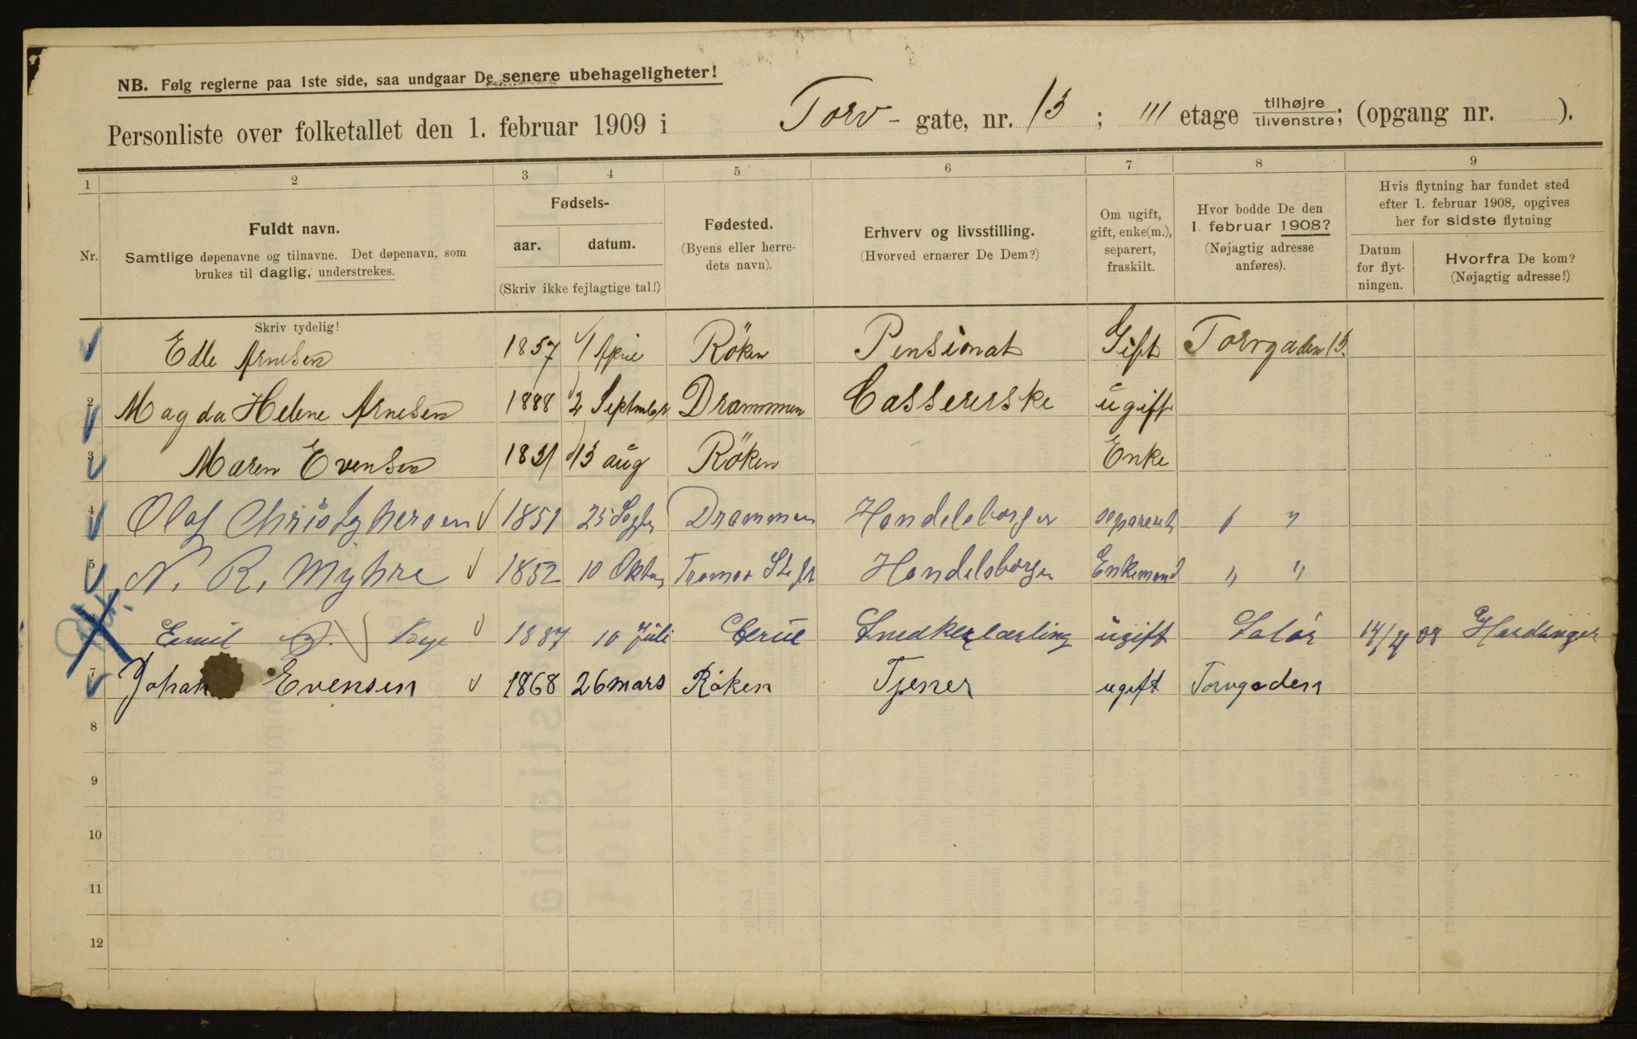 NB. Følg reglerne paa 1ste side, saa undgaar De senere ubehageligheter!
Personliste over folketallet den 1. februar 1909 i Torv - gate, nr. 13 ; III etage tilhøjre tilvenstre; (opgang nr. ).
1 2 3 4 5 6 7 8 9
Nr.
Fuldt navn.
Samtlige døpenavne og tilnavne. Det døpenavn, som
brukes til daglig, understrekes.
Fødsels-
aar. datum.
(Skriv ikke fejlagtige tal!)
Fødested.
(Byens eller herre-
dets navn).
Erhverv og livsstilling.
(Hvorved ernærer De Dem?)
Om ugift,
gift, enke(m.),
separert,
fraskilt.
Hvor bodde De den
1. februar 1908?
(Nøjagtig adresse
anføres).
Hvis flytning har fundet sted
efter 1. februar 1908, opgives
her for sidste flytning
Datum
for flyt-
ningen.
Hvorfra De kom?
(Nøjagtig adresse!)
Skriv tydelig!
1 Edle Arnesen 1857 4 April Röken Pensionat Gift Torvgaden 13.
2 Magda Helene Arnesen 1888 2 September Drammen Casserske ugift
3 Maren Evensen 1831 13 aug Röken Enke
4 Olaf Christophersen 1851 25 Septbr Drammen Handelsborger separert " "
5 N. R. Myhre 1852 10 Oktbr Tromsø Stift Handelsborger Enkemand " "
Emil 1887 10 Juli Snedkerlærling ugift Solør 14/4 08 Hardanger
7 Johan Evensen 1868 26 mars Røken Tjener ugift Torvgaden
8
9
10
11
12